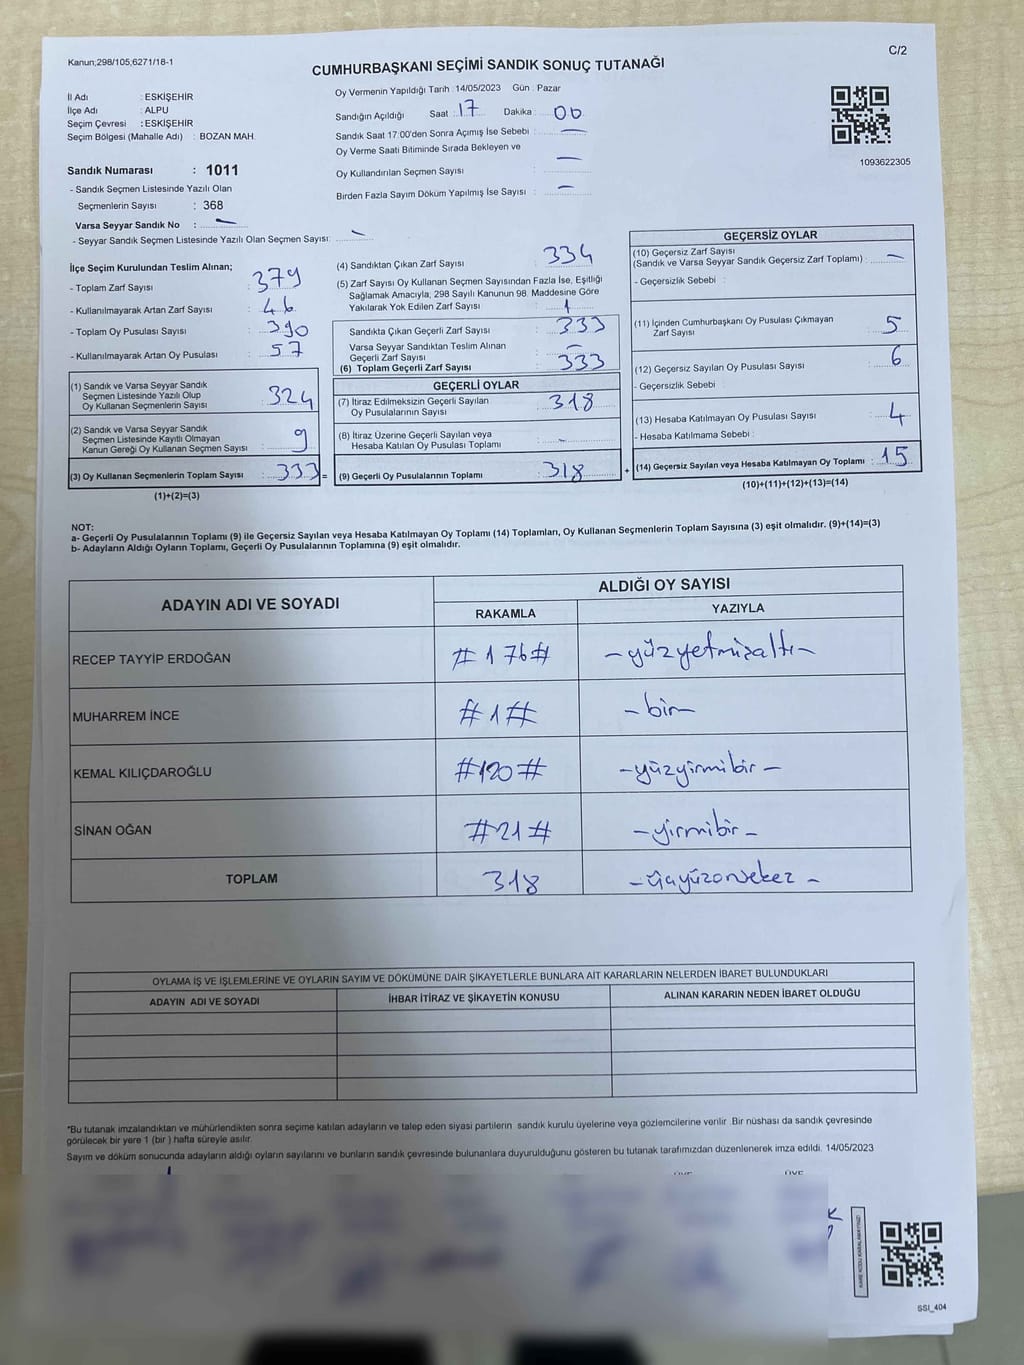 Kanun;298/105;6271/18-1
C/2
CUMHURBAŞKANI SEÇİMİ SANDIK SONUÇ TUTANAĞI
İl Adı : ESKİŞEHİR
İlçe Adı : ALPU
Seçim Çevresi : ESKİŞEHİR
Seçim Bölgesi (Mahalle Adı) : BOZAN MAH.
Oy Vermenin Yapıldığı Tarih : 14/05/2023 Gün : Pazar
Sandığın Açıldığı Saat : 17 Dakika : 00
Sandık Saat 17:00'den Sonra Açımış İse Sebebi : —
Oy Verme Saati Bitiminde Sırada Bekleyen ve
Oy Kullandırılan Seçmen Sayısı : —
Birden Fazla Sayım Döküm Yapılmış İse Sayısı : —
1093622305
Sandık Numarası : 1011
- Sandık Seçmen Listesinde Yazılı Olan
Seçmenlerin Sayısı : 368
Varsa Seyyar Sandık No : —
- Seyyar Sandık Seçmen Listesinde Yazılı Olan Seçmen Sayısı: —
İlçe Seçim Kurulundan Teslim Alınan;
- Toplam Zarf Sayısı : 379
- Kullanılmayarak Artan Zarf Sayısı : 46
- Toplam Oy Pusulası Sayısı : 390
- Kullanılmayarak Artan Oy Pusulası : 57
(1) Sandık ve Varsa Seyyar Sandık
Seçmen Listesinde Yazılı Olup
Oy Kullanan Seçmenlerin Sayısı : 324
(2) Sandık ve Varsa Seyyar Sandık
Seçmen Listesinde Kayıtlı Olmayan
Kanun Gereği Oy Kullanan Seçmen Sayısı : 9
(3) Oy Kullanan Seçmenlerin Toplam Sayısı : 333 =
(1)+(2)=(3)
(4) Sandıktan Çıkan Zarf Sayısı : 334
(5) Zarf Sayısı Oy Kullanan Seçmen Sayısından Fazla İse, Eşitliği
Sağlamak Amacıyla, 298 Sayılı Kanunun 98. Maddesine Göre
Yakılarak Yok Edilen Zarf Sayısı : 1
Sandıkta Çıkan Geçerli Zarf Sayısı : 333
Varsa Seyyar Sandıktan Teslim Alınan
Geçerli Zarf Sayısı : —
(6) Toplam Geçerli Zarf Sayısı : 333
GEÇERLİ OYLAR
(7) İtiraz Edilmeksizin Geçerli Sayılan
Oy Pusulalarının Sayısı : 318
(8) İtiraz Üzerine Geçerli Sayılan veya
Hesaba Katılan Oy Pusulası Toplamı : -
(9) Geçerli Oy Pusulalarının Toplamı : 318 +
GEÇERSİZ OYLAR
(10) Geçersiz Zarf Sayısı
(Sandık ve Varsa Seyyar Sandık Geçersiz Zarf Toplamı) : —
- Geçersizlik Sebebi :
(11) İçinden Cumhurbaşkanı Oy Pusulası Çıkmayan
Zarf Sayısı : 5
(12) Geçersiz Sayılan Oy Pusulası Sayısı : 6
- Geçersizlik Sebebi :
(13) Hesaba Katılmayan Oy Pusulası Sayısı : 4
- Hesaba Katılmama Sebebi :
(14) Geçersiz Sayılan veya Hesaba Katılmayan Oy Toplamı : 15
(10)+(11)+(12)+(13)=(14)
NOT:
a- Geçerli Oy Pusulalarının Toplamı (9) ile Geçersiz Sayılan veya Hesaba Katılmayan Oy Toplamı (14) Toplamları, Oy Kullanan Seçmenlerin Toplam Sayısına (3) eşit olmalıdır. (9)+(14)=(3)
b- Adayların Aldığı Oyların Toplamı, Geçerli Oy Pusulalarının Toplamına (9) eşit olmalıdır.
ADAYIN ADI VE SOYADI
ALDIĞI OY SAYISI
RAKAMLA YAZIYLA
RECEP TAYYİP ERDOĞAN # 176 # -yüzyetmişaltı-
MUHARREM İNCE #1# -bir-
KEMAL KILIÇDAROĞLU #120# -yüzyirmibir-
SİNAN OĞAN #21# -yirmibir-
TOPLAM 318 -üçyüzonsekez-
OYLAMA İŞ VE İŞLEMLERİNE VE OYLARIN SAYIM VE DÖKÜMÜNE DAİR ŞİKAYETLERLE BUNLARA AİT KARARLARIN NELERDEN İBARET BULUNDUKLARI
ADAYIN ADI VE SOYADI İHBAR İTİRAZ VE ŞİKAYETİN KONUSU ALINAN KARARIN NEDEN İBARET OLDUĞU
*Bu tutanak imzalandıktan ve mühürlendikten sonra seçime katılan adayların ve talep eden siyasi partilerin sandık kurulu üyelerine veya gözlemcilerine verilir. Bir nüshası da sandık çevresinde
görülecek bir yere 1 (bir ) hafta süreyle asılır.
Sayım ve döküm sonucunda adayların aldığı oyların sayılarını ve bunların sandık çevresinde bulunanlara duyurulduğunu gösteren bu tutanak tarafımızdan düzenlenerek imza edildi. 14/05/2023
ÜYE ÜYE
KARE KODU KARALAMAYINIZ!
SSI_404